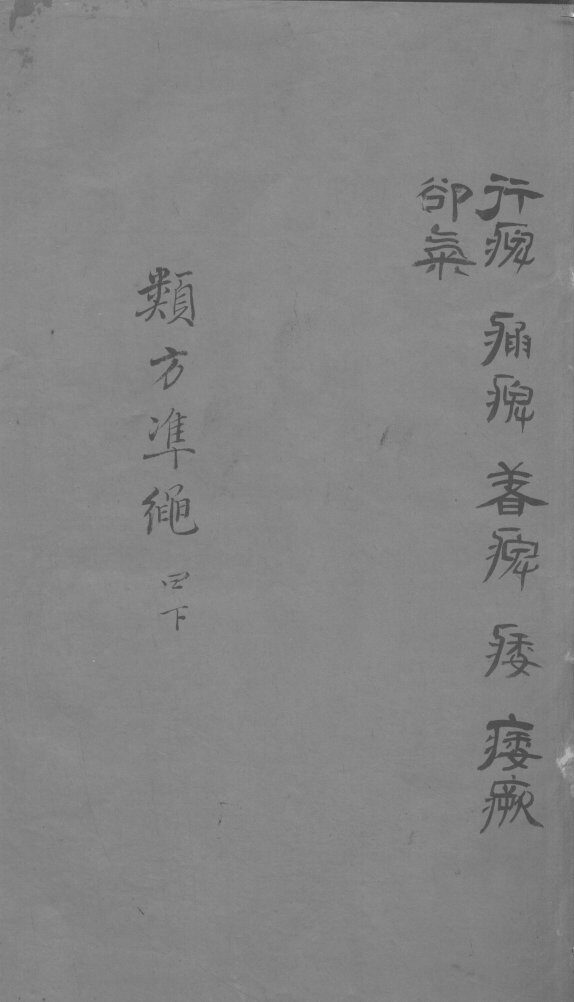 行痺 痛痺 着痺 痿 痿厥
脚氣
類方準繩 四下